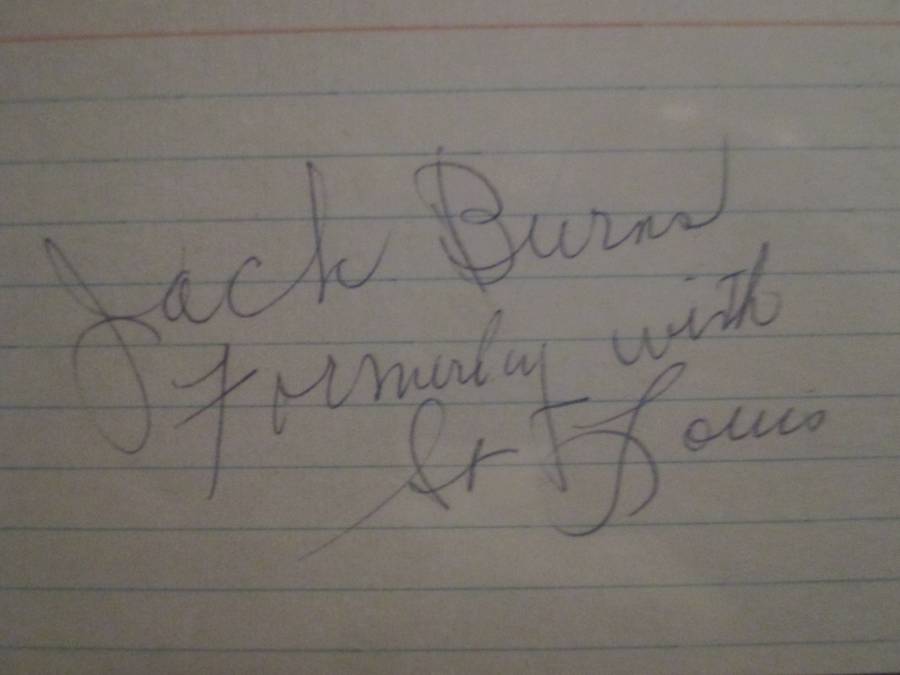 Jack Burns
Formerly with
St Louis